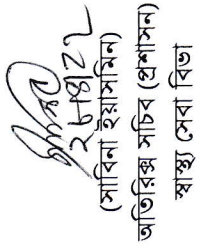 ২৮/৪/২২
(সাবিনা ইয়াসমিন)
অতিরিক্ত সচিব (প্রশাসন)
স্বাস্থ্য সেবা বিভা